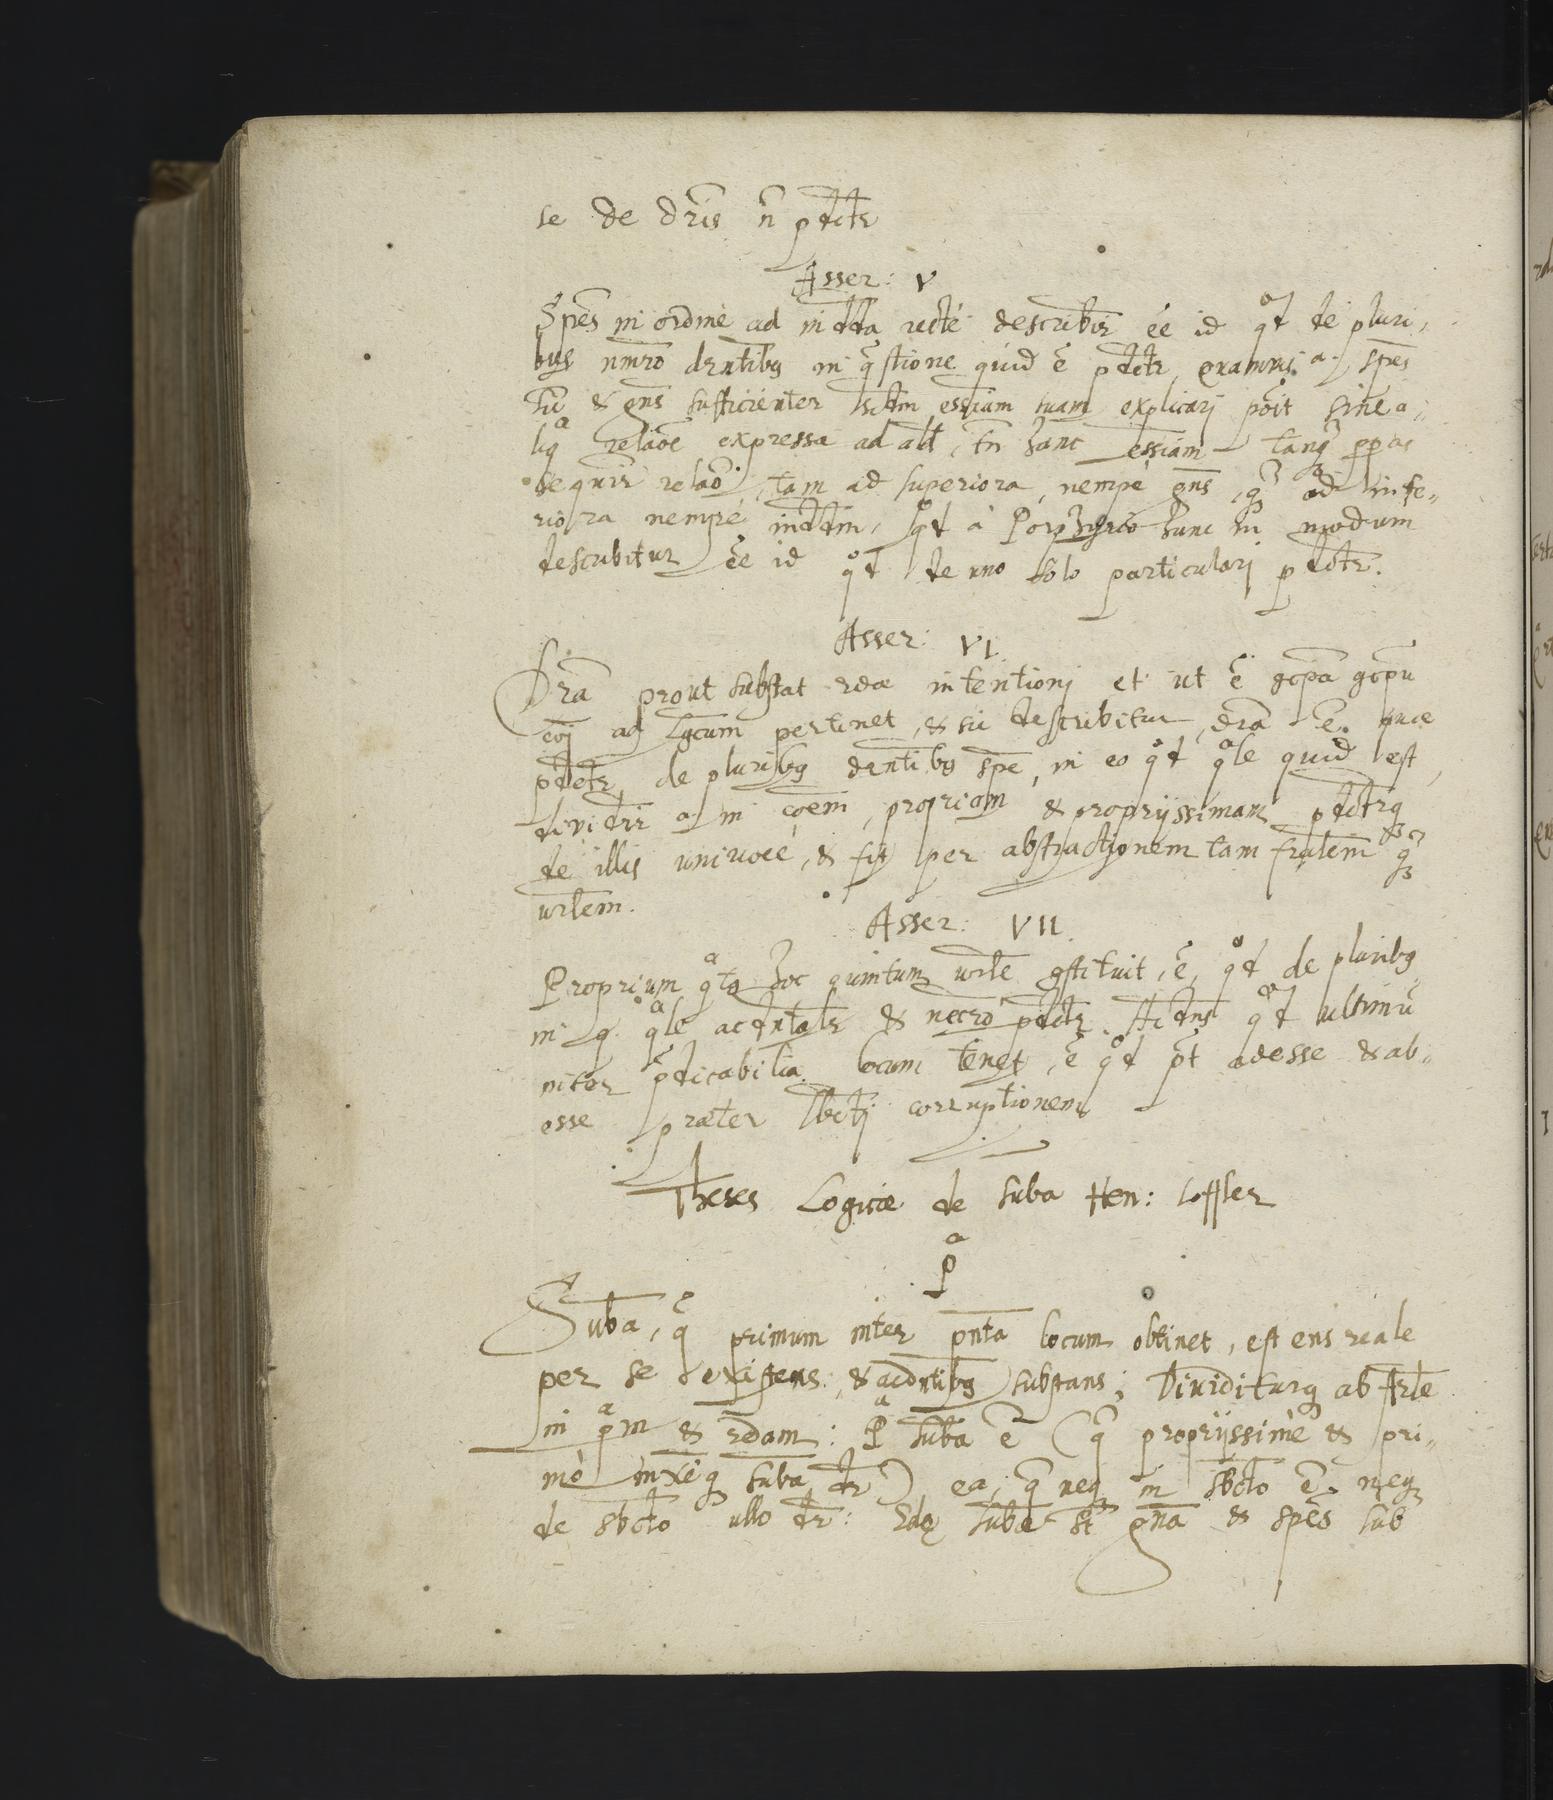 se de dr̄is n̄ pdctr
Asser: V
Spēs in ordine ad indda rectè describir ēe id qd de pluri,
bus nmrō drntibg in q̄stione quid ē pdctr, quamvis a. spēs
sufficienter essiam suam explicari poīt sine a,
liq relaōe expressa ad ald, tn̄ hanc essiam tanq ppas
sequir relaō, tam ad superiora, nempe gn̄s, q̄ ad infe,
riora nempè inddm, qd à Porphyrio hunc in modum
describitur ēe id qd de uno solo particulari pdctr.
Asser: VI
Dr̄a prout substat 2dæ intentioni et ut ē
ad Lgcum pertinet, & sic describitur, dr̄a ē. quæ
pdctr de pluribg drntibg spē, in eo qd qle quid est,
dividir a. in cōem, propriam & propriissimam, pdctrq
de illis univocè, & fit per abstractionem tam frālem q̄
urlem.
Asser: VII.
Proprium qtg hoc quintum urle gstituit, ē, qd de pluribg
in q. qle acdntalr & necrō pdctr. Acdns qd ultimū
niter p̄dicabilia locum tenet, ē qd pt adesse & ab,
esse præter sbcti corruptionem
Theses Logicæ de suba Hen: Loffler
P
Suba, q̄ primum inter pn̄ta locum obtinet, est ens reale
per se existens, & acdntibg substans; Dividiturq ab Arle
in pm & 2dam: P suba ē (q̄ propriissimè & pri,
mò mxeq suba dr) ea, q̄ neq in sbcto ē. neq
de sbcto ullo dr: 2dę subæ st gn̄a & spēs sub